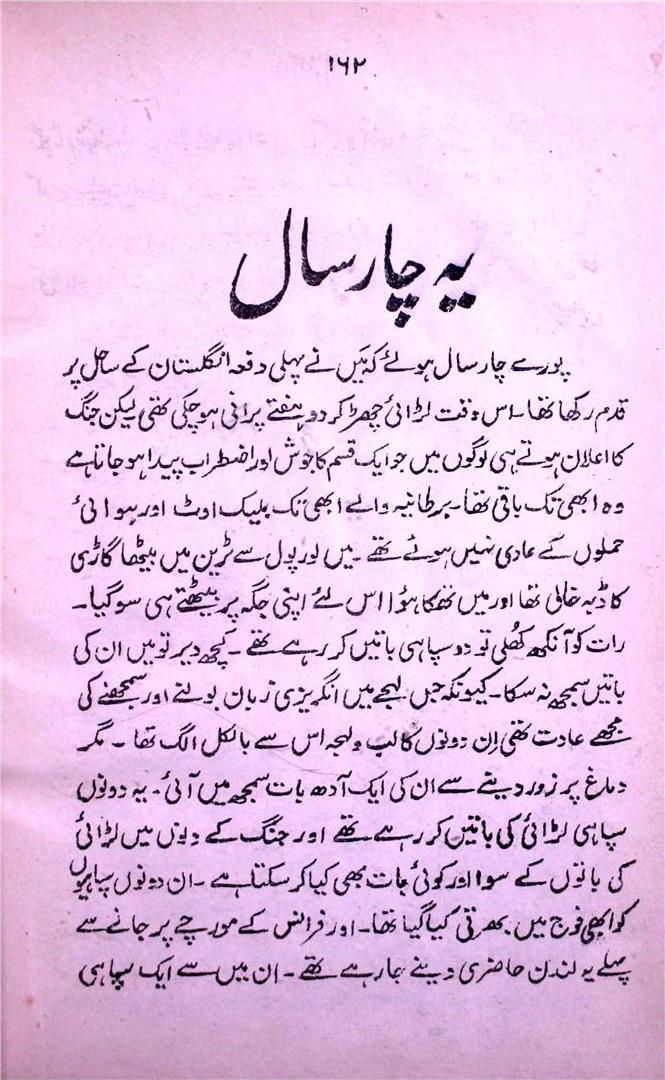 ۱۶۲
یہ چار سال
پورے چار سال ہوئے کہ میں نے پہلی دفعہ انگلستان کے ساحل پر
قدم رکھا تھا۔ اس وقت لڑائی چھڑ کر دو ہفتے پرانی ہو چکی تھی لیکن جنگ
کا اعلان ہوتے ہی لوگوں میں جو ایک قسم کا جوش اور اضطراب پیدا ہو جاتا ہے
وہ ابھی تک باقی تھا۔ برطانیہ والے ابھی تک بلیک اوٹ اور ہوائی
حملوں کے عادی نہیں ہوئے تھے۔ میں لورپول سے ٹرین میں بیٹھا گاڑی
کا ڈبہ خالی تھا اور میں تھکا ہوا اس لئے اپنی جگہ پر بیٹھتے ہی سو گیا۔
رات کو آنکھ کھلی تو دو سپاہی باتیں کر رہے تھے۔ کچھ دیر تو میں ان کی
باتیں سمجھ نہ سکا۔ کیونکہ جس لہجے میں انگریزی زبان بولنے اور سمجھنے کی
مجھے عادت تھی اِن دونوں کا لب و لہجہ اس سے بالکل الگ تھا۔ مگر
دماغ پر زور دینے سے ان کی ایک آدھ بات سمجھ میں آئی۔ یہ دونوں
سپاہی لڑائی کی باتیں کر رہے تھے اور جنگ کے دنوں میں لڑائی
کی باتوں کے سوا اور کوئی بات بھی کیا کر سکتا ہے۔ ان دونوں سپاہیوں
کو ابھی فوج میں بھرتی کیا گیا تھا۔ اور فرانس کے مورچے پر جانے سے
پہلے یہ لندن حاضری دینے جا رہے تھے۔ اِن میں سے ایک سپاہی